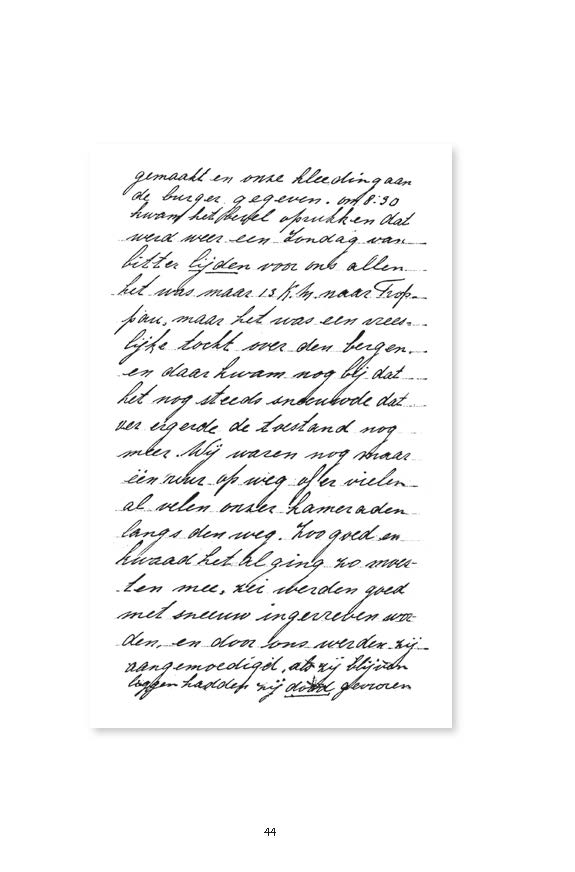 gemaakt en onze kleeding aan
de burger gegeven. om 8:30
kwam het bevel oprukken dat
werd weer een Zondag van
bitter lijden voor ons allen
het was maar 13 K.M. naar Trop-
pau, maar het was een vrees-
lijke tocht over den bergen.
en daar kwam nog bij dat
het nog steeds sneeuwde dat
ver ergerde de toestand nog
meer. Wij waren nog maar
één uur op weg of er vielen
al velen onzer kameraden
langs den weg. Zoo goed en
kwaad het al ging zo moes-
ten mee, zei werden goed
met sneeuw ingevreven wor-
den, en door ons werden zij
aangemoedigd, als zij blijven
liggen hadden zij dood gevroren
44